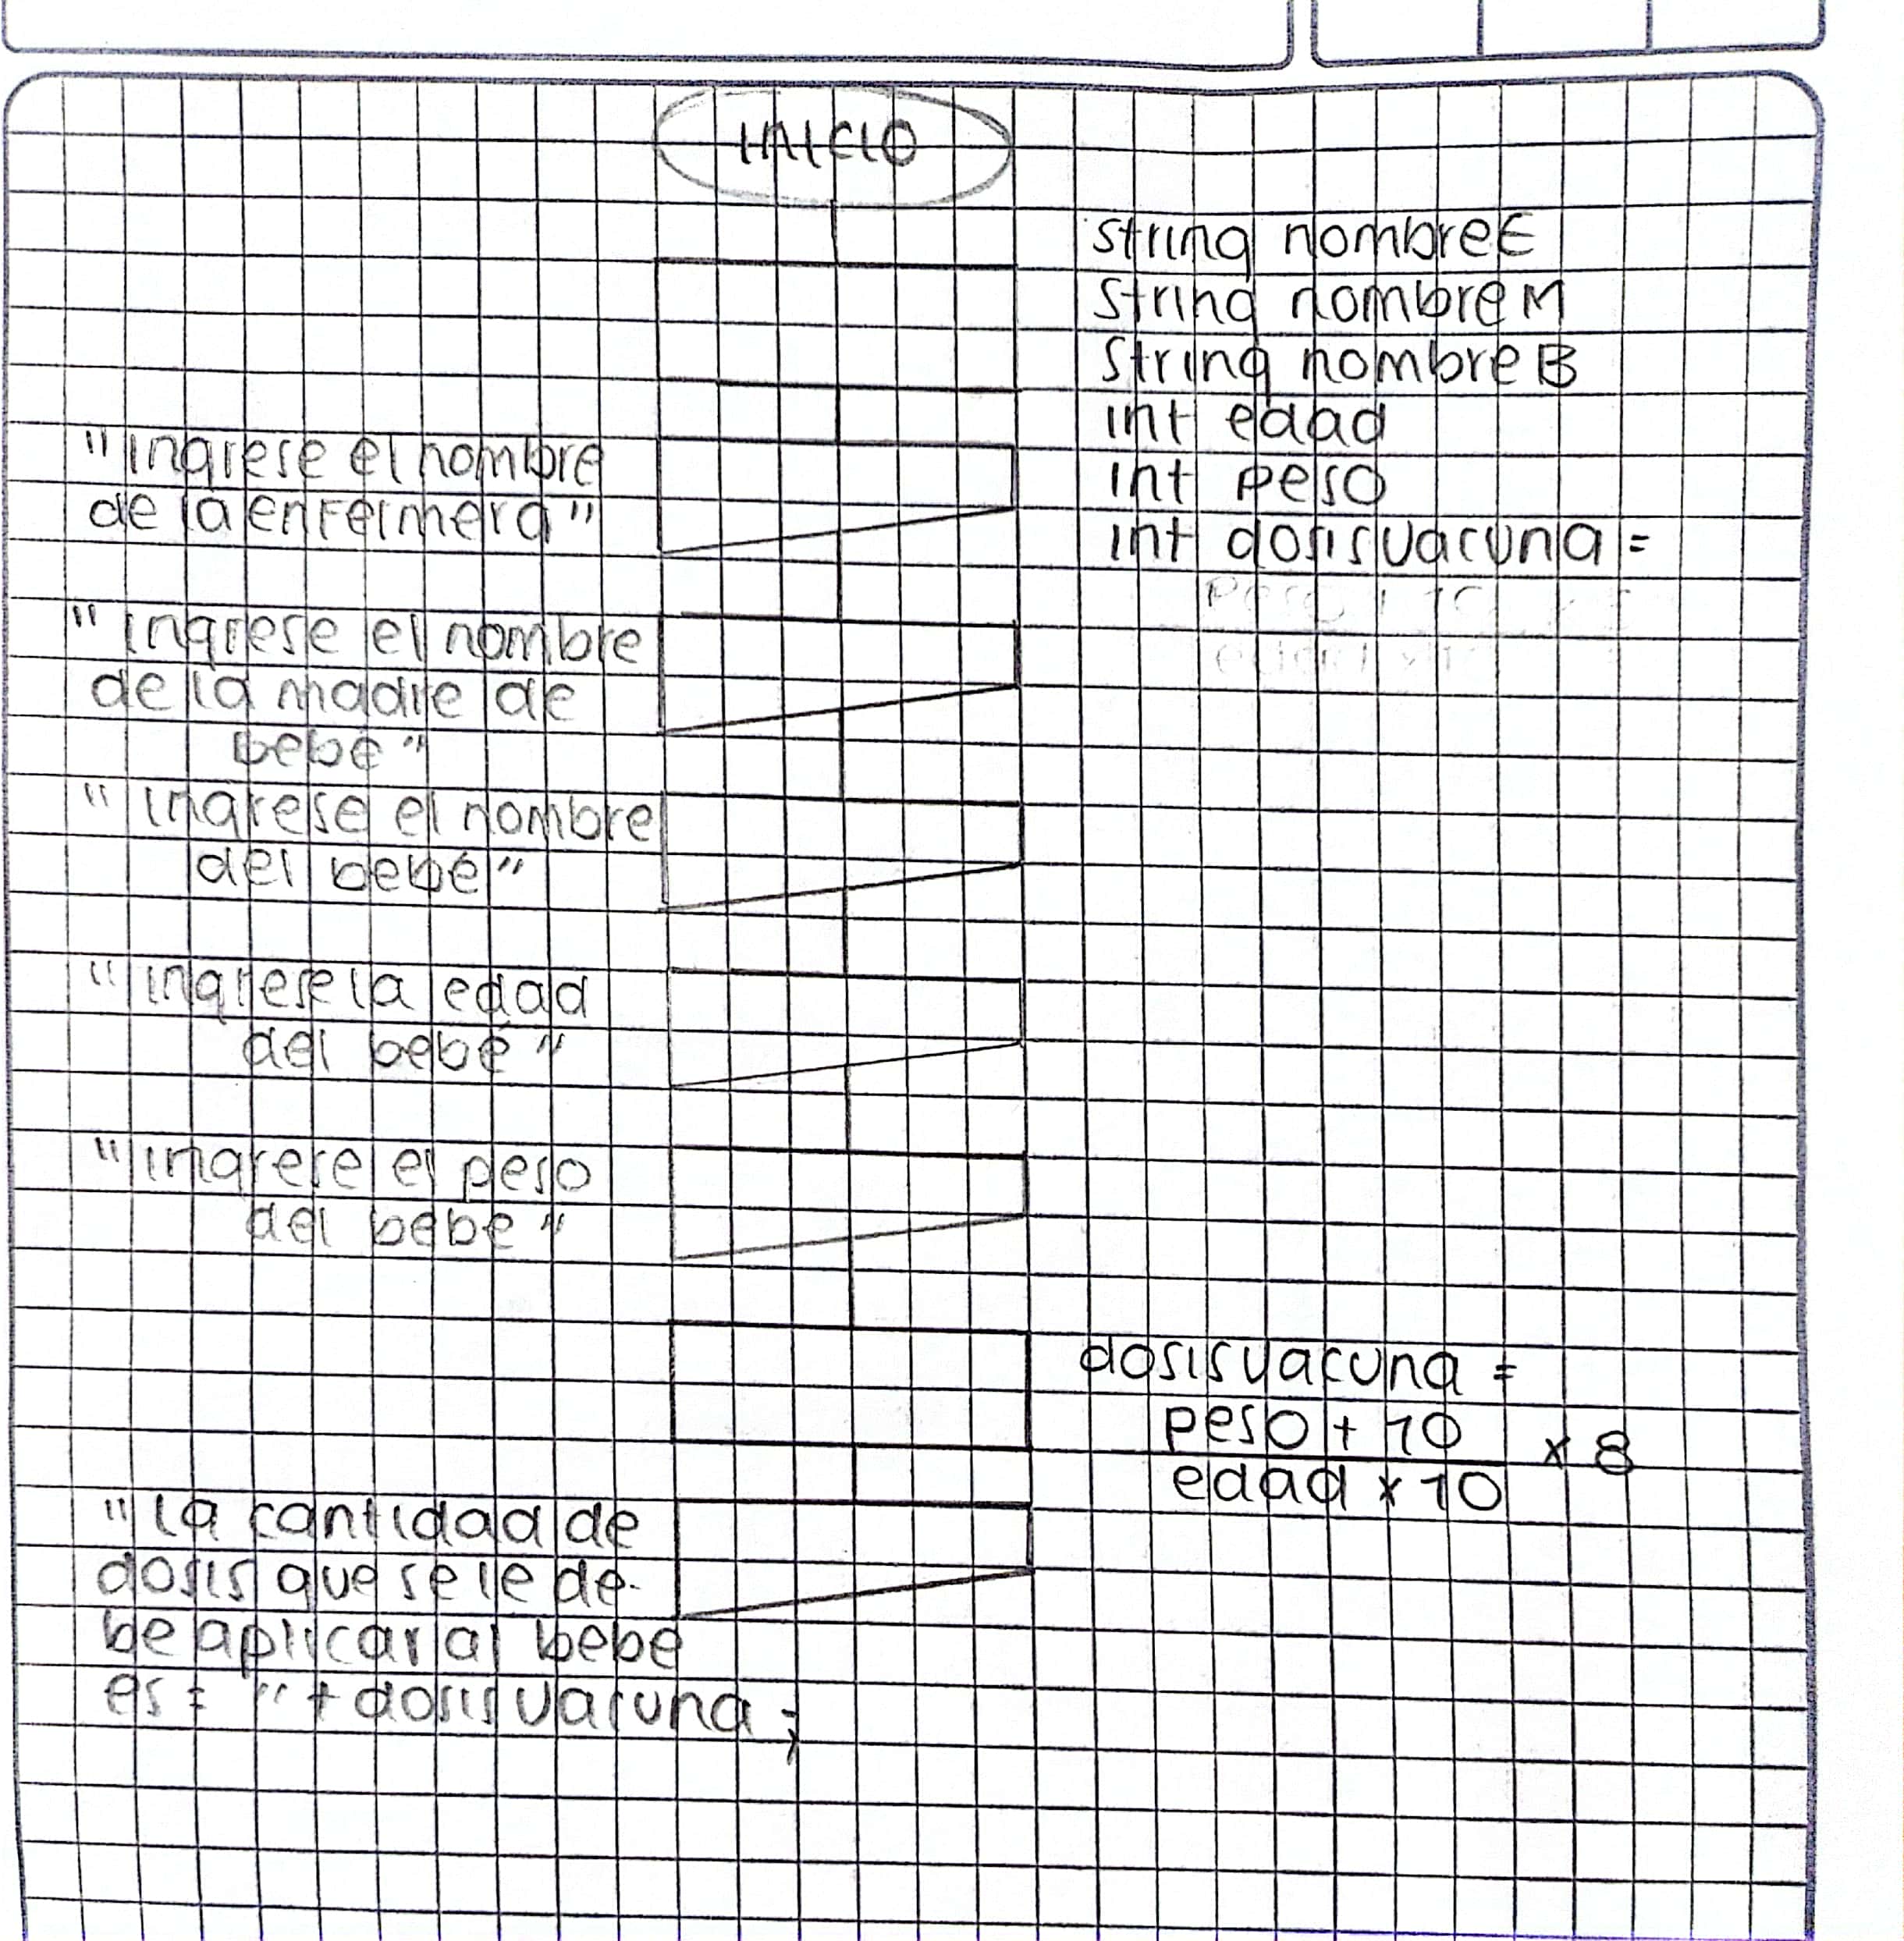 INICIO
string nombreE
String nombreM
String nombreB
int edad
int peso
int dosisvacuna =
"ingrese el nombre
de la enfermera"
"ingrese el nombre
de la madre de
bebé"
"ingrese el nombre
del bebé"
"ingrese la edad
del bebé"
"ingrese el peso
del bebe"
dosisvacuna =
peso + 10
x 8
edad x 10
"la cantidad de
dosis que se le de-
be aplicar al bebe
es: " + dosisvacuna;